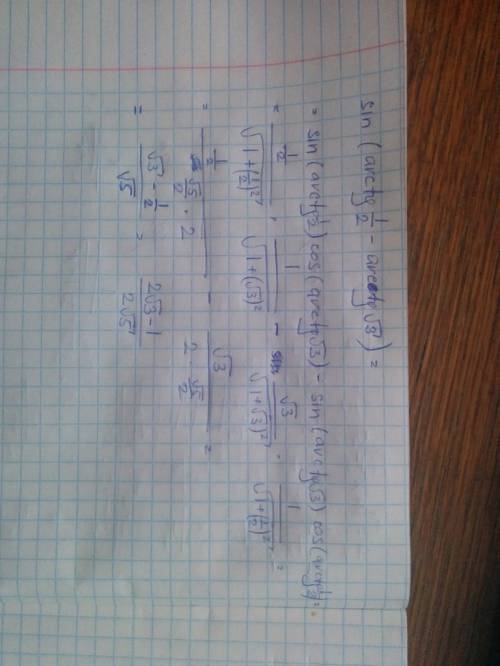 sin (arctg 1/2 - arctg √3) =
= sin (arctg 1/2) cos (arctg √3) - sin (arctg √3) cos (arctg 1/2) =
= (1/2)/√(1+(1/2)²) · 1/√(1+(√3)²) - √3/√(1+(√3)²) · 1/√(1+(1/2)²) =
= (1/2)/(√5/2 · 2) - √3/(2 · √5/2) =
= (√3 - 1/2)/√5 = (2√3 - 1)/(2√5)